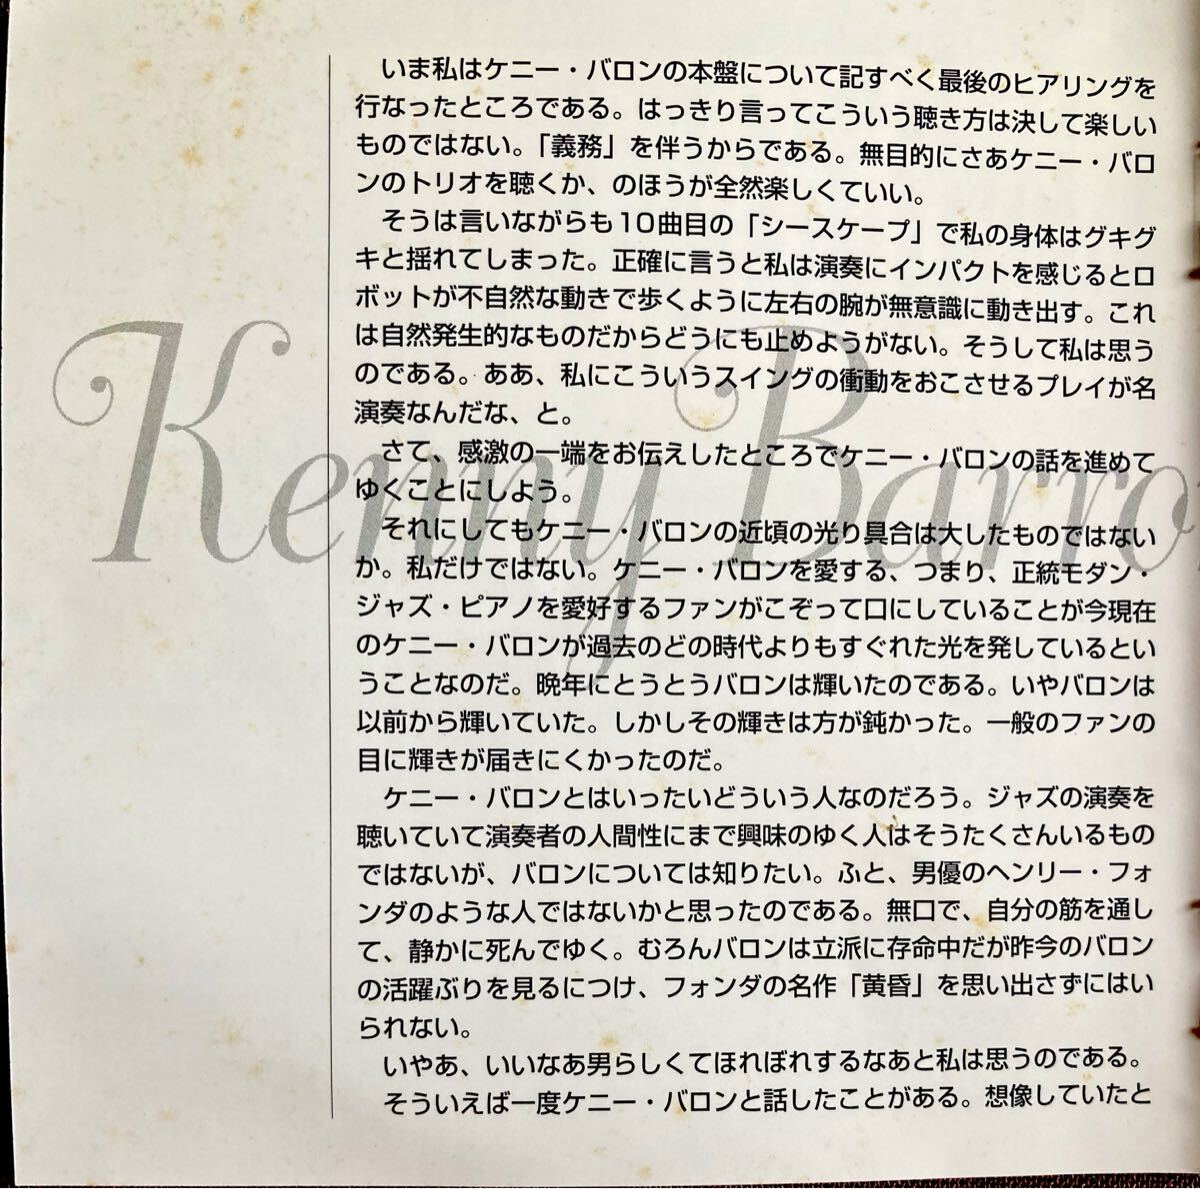 いま私はケニー・バロンの本盤について記すべく最後のヒアリングを
行なったところである。はっきり言ってこういう聴き方は決して楽しい
ものではない。「義務」を伴うからである。無目的にさあケニー・バロ
ンのトリオを聴くか、のほうが全然楽しくていい。
そうは言いながらも10曲目の「シースケープ」で私の身体はグキグ
キと揺れてしまった。正確に言うと私は演奏にインパクトを感じるとロ
ボットが不自然な動きで歩くように左右の腕が無意識に動き出す。これ
は自然発生的なものだからどうにも止めようがない。そうして私は思う
のである。ああ、私にこういうスイングの衝動をおこさせるプレイが名
演奏なんだな、と。
さて、感激の一端をお伝えしたところでケニー・バロンの話を進めて
ゆくことにしよう。
それにしてもケニー・バロンの近頃の光り具合は大したものではない
か。私だけではない。ケニー・バロンを愛する、つまり、正統モダン・
ジャズ・ピアノを愛好するファンがこぞって口にしていることが今現在
のケニー・バロンが過去のどの時代よりもすぐれた光を発しているとい
うことなのだ。晩年にとうとうバロンは輝いたのである。いやバロンは
以前から輝いていた。しかしその輝きは方が鈍かった。一般のファンの
目に輝きが届きにくかったのだ。
ケニー・バロンとはいったいどういう人なのだろう。ジャズの演奏を
聴いていて演奏者の人間性にまで興味のゆく人はそうたくさんいるもの
ではないが、バロンについては知りたい。ふと、男優のヘンリー・フォ
ンダのような人ではないかと思ったのである。無口で、自分の筋を通し
て、静かに死んでゆく。むろんバロンは立派に存命中だが昨今のバロン
の活躍ぶりを見るにつけ、フォンダの名作「黄昏」を思い出さずにはい
られない。
いやあ、いいなあ男らしくてほれぼれするなあと私は思うのである。
そういえば一度ケニー・バロンと話したことがある。想像していたと
Kenny Barro